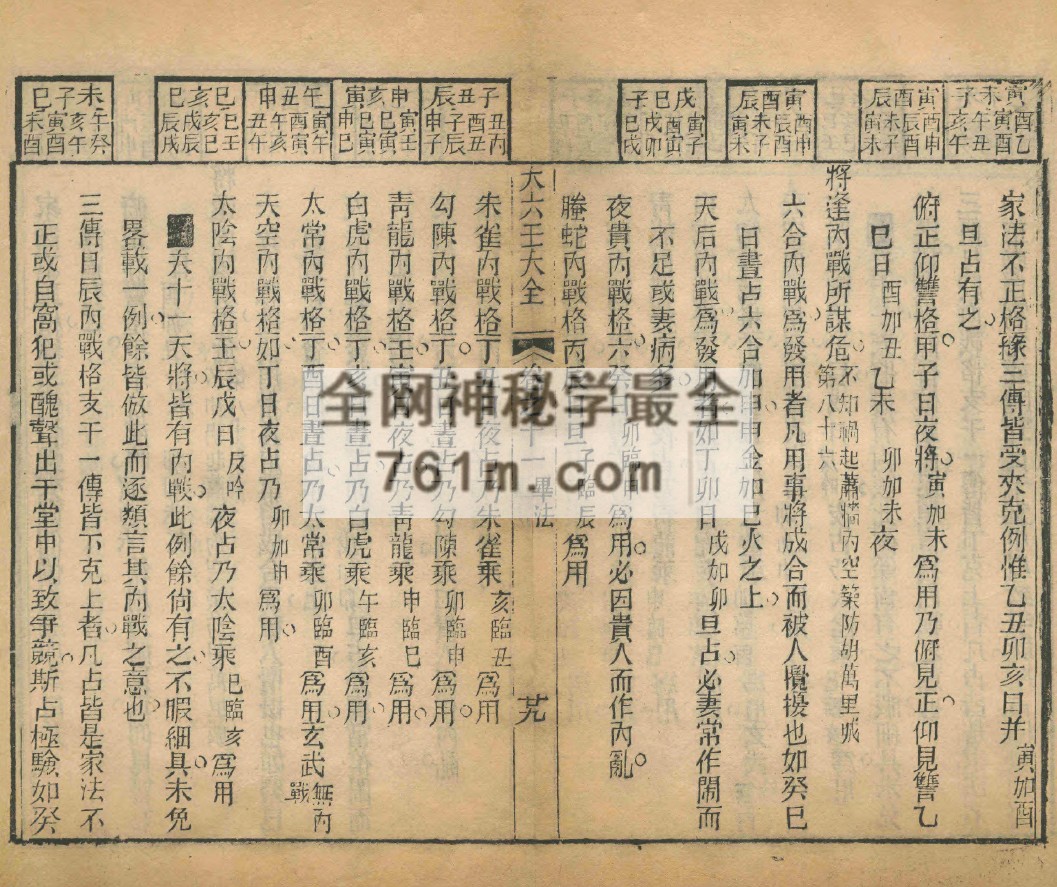 家法不正格緣三傳皆受夾克例惟乙丑卯亥日并寅加酉
旦占有之
俯正仰讐格甲子日夜將寅加未為用乃俯見正仰見讐乙
巳日酉加丑乙未卯加未夜
將逢內戰所謀危不知禍起蕭牆內空築防胡萬里城第八十六
六合內戰為發用者凡用事將成合而被人攪擾也如癸巳
日晝占六合加申申金加巳火之上
天后內戰為發用者如丁卯日戌加卯旦占必妻常作鬧而
不足或妻病多
夜貴內戰格六癸日卯臨申為用必因貴人而作內亂
螣蛇內戰格丙辰日旦子臨辰為用
大六壬大全
十一
畢法
廿九
朱雀內戰格丁丑日夜占乃朱雀乘亥臨丑為用
勾陳內戰格丁丑日晝占乃勾陳乘卯臨申為用
青龍內戰格壬寅日夜占乃青龍乘申臨巳為用
白虎內戰格丁亥日晝占乃白虎乘午臨亥為用
太常內戰格丁酉日晝占乃太常乘卯臨酉為用玄武無內戰
天空內戰格如丁日夜占乃卯加申為用
太陰內戰格壬辰戊日反吟夜占乃太陰乘巳臨亥為用
夫十一天將皆有內戰此例餘尚有之不暇細具未免
畧載一例餘皆倣此而逐類言其內戰之意也
三傳日辰內戰格支干一傳皆下克上者凡占皆是家法不
正或自窩犯或醜聲出于堂中以致爭競斯占極驗如癸
全网神秘学最全
761m.com